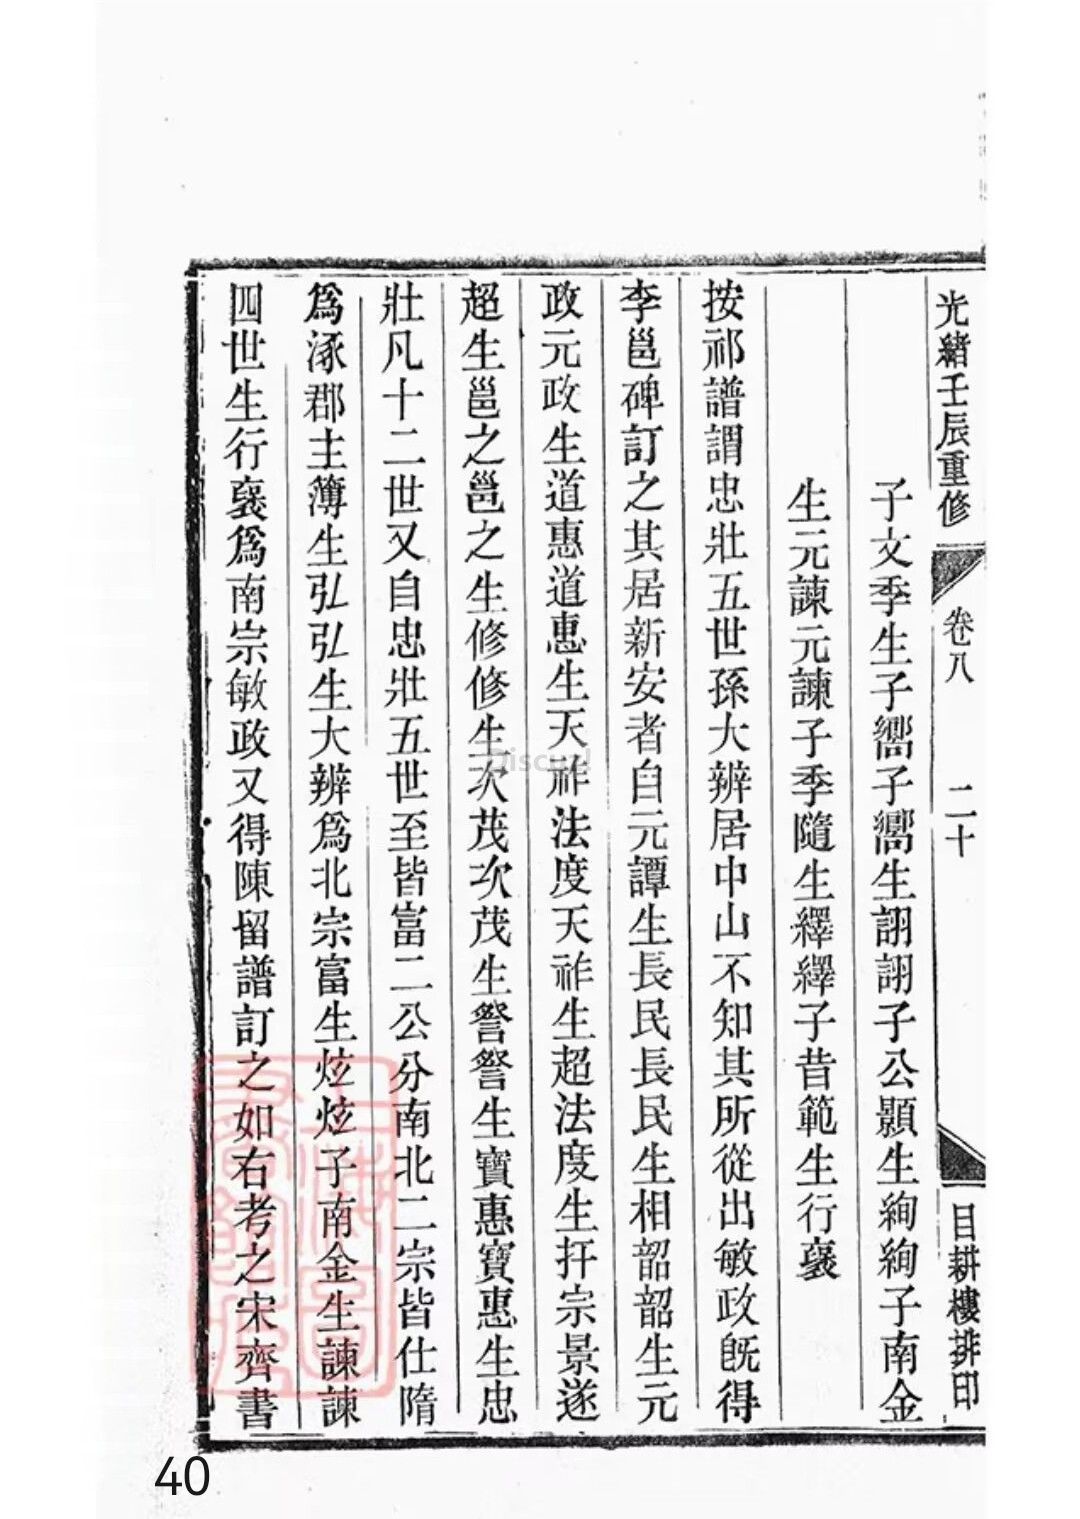 光緒壬辰重修 卷八 二十 目耕樓排印
子文季生子嚮子嚮生詡詡子公顥生絢絢子南金
生元諫元諫子季隨生繹繹子昔範生行襃
按祁譜謂忠壯五世孫大辨居中山不知其所從出敏政旣得
李邕碑訂之其居新安者自元譚生長民長民生相韶韶生元
政元政生道惠道惠生天祚法度天祚生超法度生扞宗景遂
超生邕之邕之生修修生次茂次茂生詧詧生寶惠寶惠生忠
壯凡十二世又自忠壯五世至皆富二公分南北二宗皆仕隋
爲涿郡主簿生弘弘生大辨爲北宗富生炫炫子南金生諫諫
四世生行襃爲南宗敏政又得陳留譜訂之如右考之宋齊書
Discuz!
40